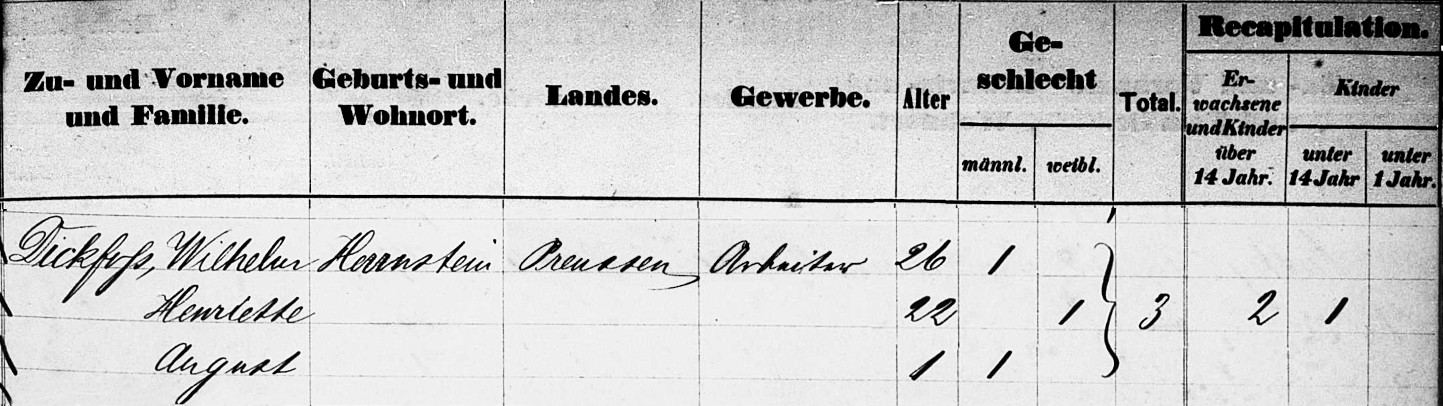 Zu- und Vorname und Familie.
Geburts- und Wohnort.
Landes.
Gewerbe.
Alter
Ge-schlecht
männl.
weibl.
Total.
Recapitulation.
Er-wachsene und Kinder über 14 Jahr.
Kinder
unter 14 Jahr
unter 1 Jahr.
Dickfoss, Wilhelm Herrnstein Preussen Arbeiter 26 1
Henriette 22 1 3 2 1
August 1 1